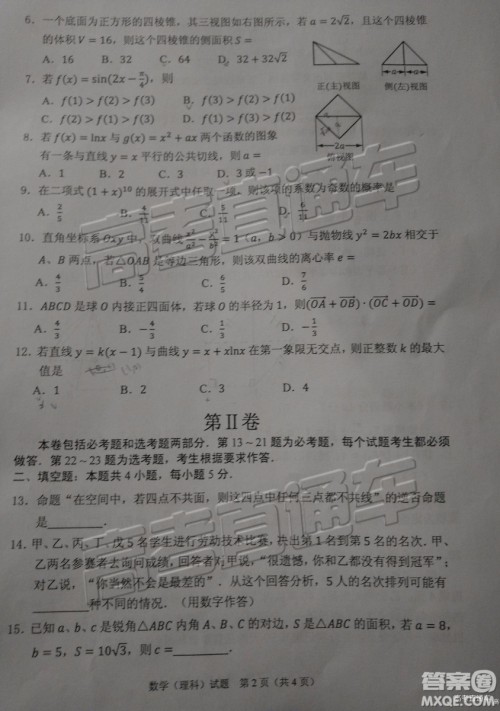 6. 一个底面为正方形的四棱锥，其三视图如右图所示，若 a = 2√2，且这个四棱锥
的体积 V = 16，则这个四棱锥的侧面积 S =
A. 16 B. 32 C. 64 D. 32 + 32√2
正(主)视图 侧(左)视图
7. 若 f(x) = sin(2x − π/4)，则
A. f(1) > f(2) > f(3) B. f(3) > f(2) > f(1)
C. f(2) > f(1) > f(3) D. f(1) > f(3) > f(2)
8. 若 f(x) = lnx 与 g(x) = x² + ax 两个函数的图象
有一条与直线 y = x 平行的公共切线，则 a =
A. 1 B. 2 C. 3 D. 3 或 −1
2a
俯视图
9. 在二项式 (1 + x)¹⁰ 的展开式中任取一项，则该项的系数为奇数的概率是
A. 2/5 B. 4/11 C. 5/11 D. 6/11
10. 直角坐标系 Oxy 中，双曲线 x²/a² − y²/b² = 1（a, b > 0）与抛物线 y² = 2bx 相交于
A、B 两点，若 △OAB 是等边三角形，则该双曲线的离心率 e =
A. 4/3 B. 5/4 C. 6/5 D. 7/6
11. ABCD 是球 O 内接正四面体，若球 O 的半径为 1，则 (OA + OB) · (OC + OD) =
A. 4/3 B. −4/3 C. 1/3 D. −1/3
12. 若直线 y = k(x − 1) 与曲线 y = x + xlnx 在第一象限无交点，则正整数 k 的最大
值是
A. 1 B. 2 C. 3 D. 4
第Ⅱ卷
本卷包括必考题和选考题两部分．第 13～21 题为必考题，每个试题考生都必须
做答．第 22～23 题为选考题，考生根据要求作答．
二、填空题：本题共 4 小题，每小题 5 分．
13. 命题“在空间中，若四点不共面，则这四点中任何三点都不共线”的逆否命题
是________．
14. 甲、乙、丙、丁、戊 5 名学生进行劳动技术比赛，决出第 1 名到第 5 名的名次．甲、
乙两名参赛者去询问成绩，回答者对甲说，“很遗憾，你和乙都没有得到冠军”；
对乙说，“你当然不会是最差的”．从这个回答分析，5 人的名次排列可能有
________种不同的情况．（用数字作答）
15. 已知 a、b、c 是锐角 △ABC 内角 A、B、C 的对边，S 是 △ABC 的面积，若 a = 8，
b = 5，S = 10√3，则 c = ________．
数学（理科）试题 第 2 页（共 4 页）
高考直通车
高考直通车
答案圈